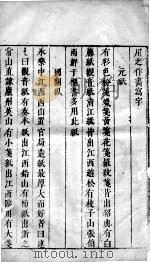 用之作書寫字
元紙
有彩色粉箋蠟箋黃箋花箋羅紋箋皆出紹興有白
籙紙觀音紙清江紙皆出江西趙松雪巙子山張伯
雨鮮于樞書多用此紙
國朝紙
永樂中江西西山置官局造紙最厚大而好者曰連
七曰觀音紙有奏本紙出江西鉛山有榜紙出浙之
常山直隸廬州英山有小箋紙出江西臨川有大箋